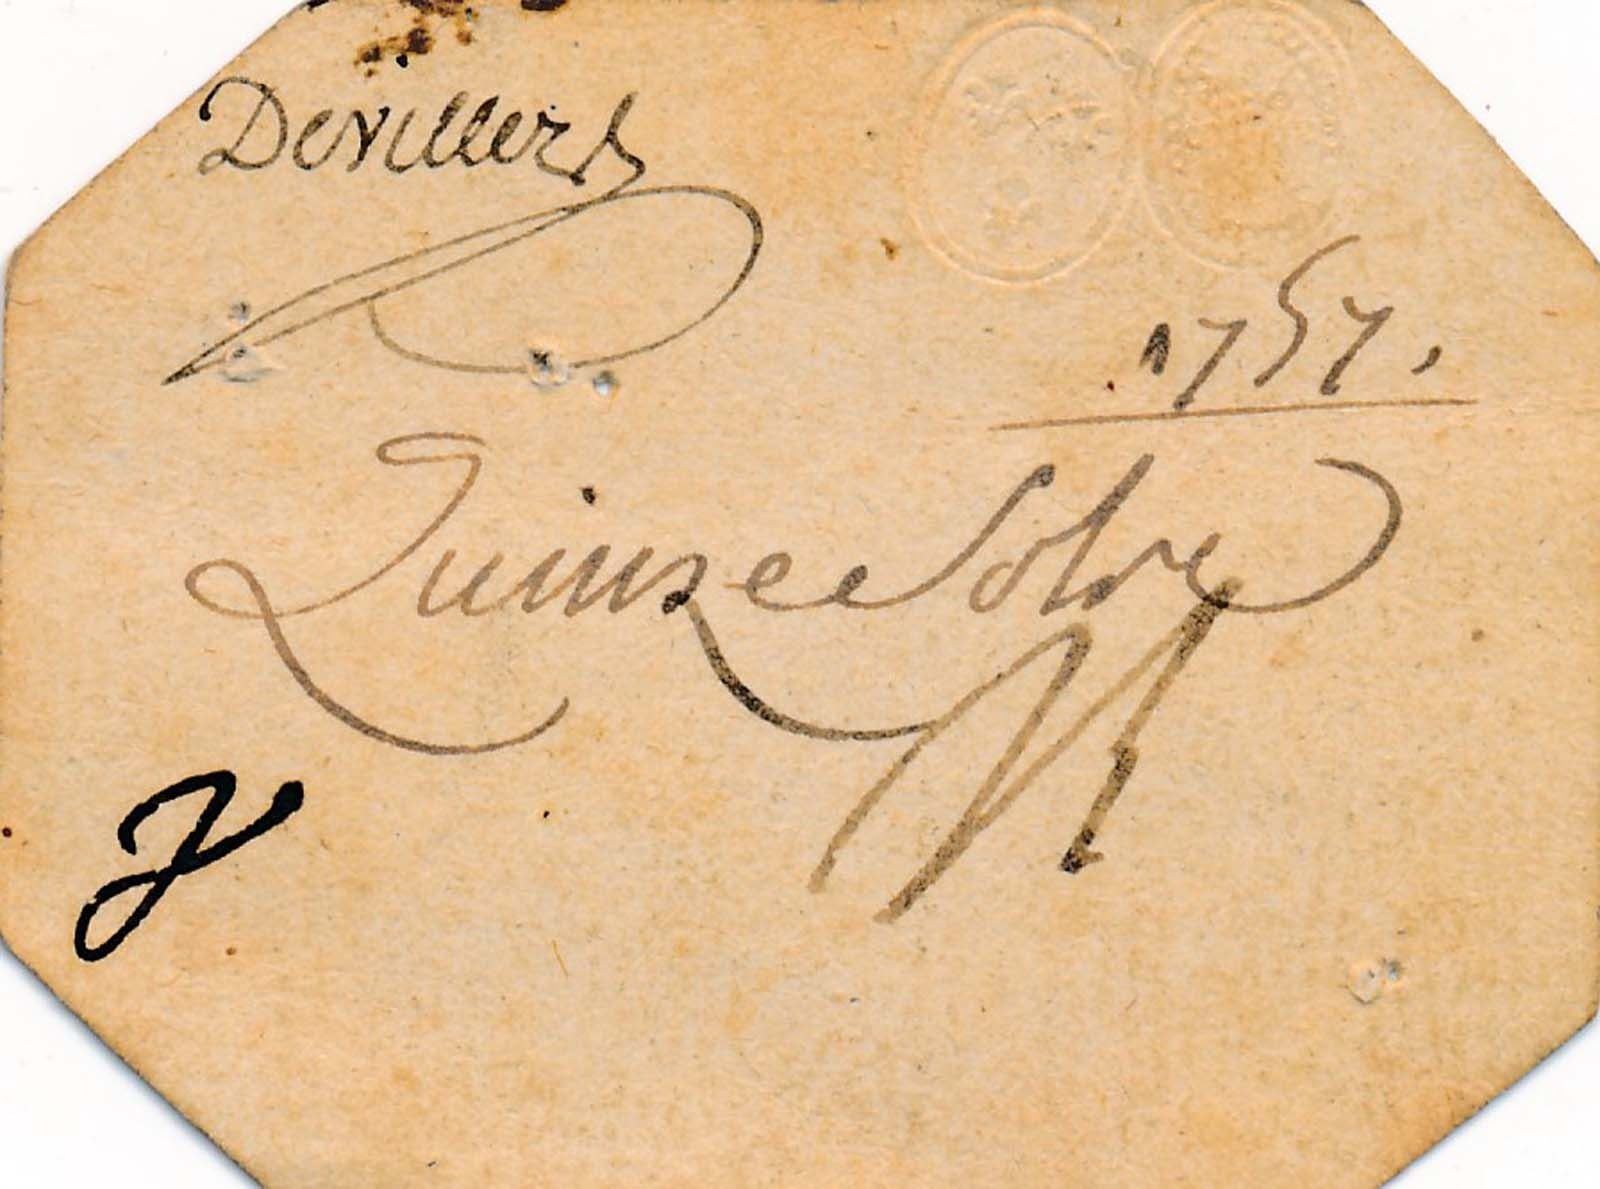 Devillers
1757.
Quinze Solz